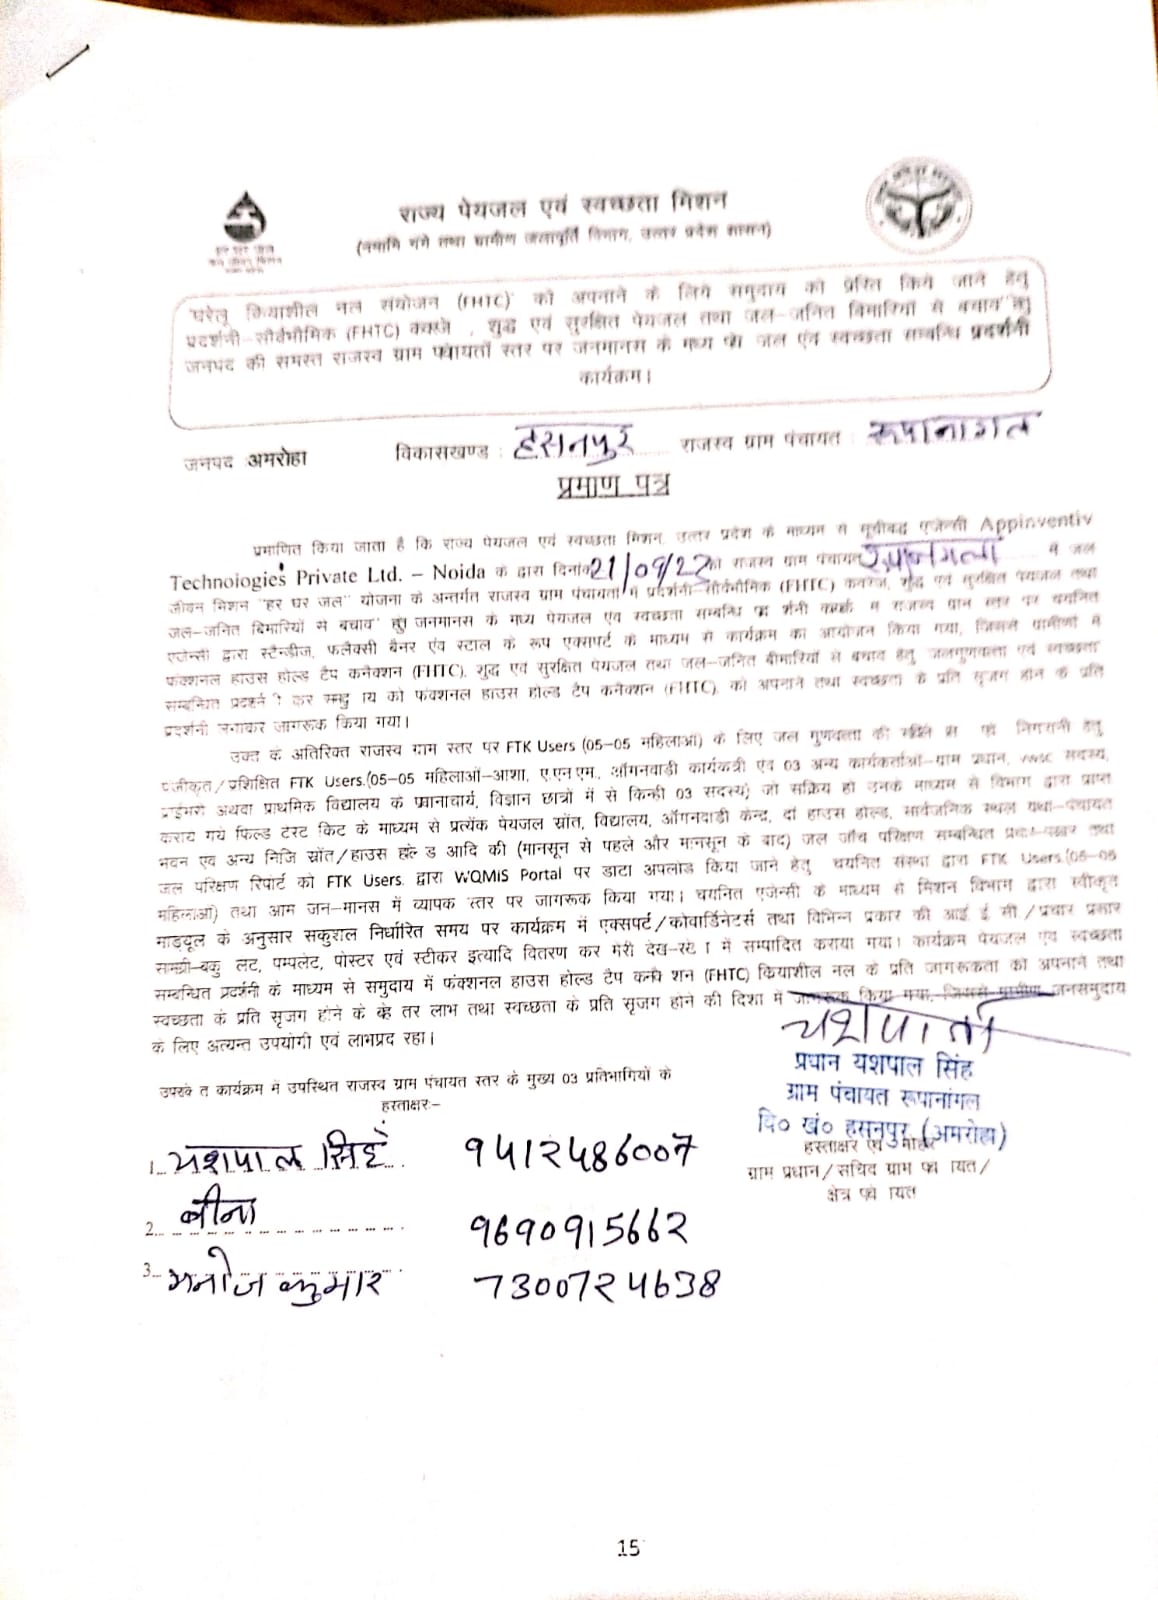 राज्य पेयजल एवं स्वच्छता मिशन
(नमामि गंगे तथा ग्रामीण जलापूर्ति विभाग, उत्तर प्रदेश शासन)
हर घर जल
जल जीवन मिशन
"घरेलू कियाशील नल संयोजन (FHTC)" को अपनाने के लिये समुदाय को प्रेरित किये जाने हेतु
प्रदर्शनी-सौर्वभौमिक (FHTC) , शुद्ध एवं सुरक्षित पेयजल तथा जल-जनित बिमारियों से बचाव"
जनपद की समस्त राजस्व ग्राम पंचायतों स्तर पर जनमानस के मध्य जल एंव स्वच्छता सम्बन्धि प्रदर्शनी
कार्यक्रम।
जनपद अमरोहा विकासखण्ड : हसनपुर राजस्व ग्राम पंचायत :
प्रमाण पत्र
प्रमाणित किया जाता है कि राज्य पेयजल एवं स्वच्छता मिशन, उत्तर प्रदेश के माध्यम से सूचीबद्ध एजेन्सी Appinventiv
Technologies Private Ltd. – Noida के द्वारा दिनांक 21/09/23 को राजस्व ग्राम पंचायत में जल
जीवन मिशन "हर घर जल" योजना के अन्तर्गत राजस्व ग्राम पंचायतो में प्रदर्शनी-सौर्वभौमिक (FHTC) कवरेज, शुद्ध एवं सुरक्षित पेयजल तथा
जल-जनित बिमारियों से बचाव" हेतु जनमानस के मध्य पेयजल एंव स्वच्छता सम्बन्धि राजस्व ग्राम स्तर पर चयनित
एजेन्सी द्वारा स्टैन्डीज, फलैक्सी बैनर एंव स्टाल के रूप एक्सपर्ट के माध्यम से कार्यक्रम का आयोजन किया गया, जिससे ग्रामीणों में
फंक्शनल हाउस होल्ड टैप कनैक्शन (FHTC), शुद्ध एवं सुरक्षित पेयजल तथा जल-जनित बीमारियों से बचाव हेतु जलगुणवत्ता एवं स्वच्छता
सम्बन्धित कर को फंक्शनल हाउस होल्ड टैप कनैक्शन (FHTC), को अपनाने तथा स्वच्छता के प्रति सृजग होने के प्रति
प्रदर्शनी लगाकर जागरूक किया गया।
उक्त के अतिरिक्त राजस्व ग्राम स्तर पर FTK Users (05-05 महिलाओं) के लिए जल गुणवत्ता की निगरानी हेतु
पंजीकृत/प्रशिक्षित FTK Users.(05-05 महिलाओं-आशा, ए.एन.एम., आँगनवाड़ी कार्यकत्री एंव 03 अन्य कार्यकर्ताओं-ग्राम प्रधान, vwsc सदस्य,
प्राईमरी अथवा प्राथमिक विद्यालय के प्रधानाचार्य, विज्ञान छात्रों में से किन्ही 03 सदस्य) जो सक्रिय हो उनके माध्यम से विभाग द्वारा प्राप्त
कराये गये फिल्ड टेस्ट किट के माध्यम से प्रत्येंक पेयजल स्रोंत, विद्यालय, आँगनवाड़ी केन्द्र, दो हाउस होल्ड, सार्वजनिक स्थल यथा-पंचायत
भवन एवं अन्य निजि स्रोंत/हाउस आदि की (मानसून से पहले और मानसून के बाद) जल जाँच परिक्षण सम्बन्धित तथा
जल परिक्षण रिपोर्ट को FTK Users. द्वारा WQMIS Portal पर डाटा अपलोड किया जाने हेतु चयनित संस्था द्वारा FTK Users.(05-05
महिलाओं) तथा आम जन-मानस में व्यापक स्तर पर जागरूक किया गया। चयनित एजेन्सी के माध्यम से मिशन विभाग द्वारा स्वीकृत
माड्यूल के अनुसार सकुशल निर्धारित समय पर कार्यक्रम में एक्सपर्ट/कोवार्डिनेटर्स तथा विभिन्न प्रकार की आई ई सी/प्रचार प्रसार
सामग्री-बुकलेट, पम्पलेट, पोस्टर एवं स्टीकर इत्यादि वितरण कर मेरी देख-रेख में सम्पादित कराया गया। कार्यक्रम पेयजल एंव स्वच्छता
सम्बन्धित प्रदर्शनी के माध्यम से समुदाय में फंक्शनल हाउस होल्ड टैप (FHTC) कियाशील नल के प्रति जागरूकता को अपनाने तथा
स्वच्छता के प्रति सृजग होने के तर लाभ तथा स्वच्छता के प्रति सृजग होने की दिशा में जागरूक किया गया, जिससे ग्रामीण जनसमुदाय
के लिए अत्यन्त उपयोगी एवं लाभप्रद रहा।
यशपाल
प्रधान यशपाल सिंह
ग्राम पंचायत रूपानांगल
वि० खं० हसनपुर (अमरोहा)
हस्ताक्षर एवं मोहर
ग्राम प्रधान/सचिव ग्राम पंचायत/
क्षेत्र पंचायत
कार्यक्रम में उपस्थित राजस्व ग्राम पंचायत स्तर के मुख्य 03 प्रतिभागियों के
हस्ताक्षर:-
1. यशपाल सिंह 9412486007
2. बीना 9690915662
3. मनोज कुमार 7300724638
15